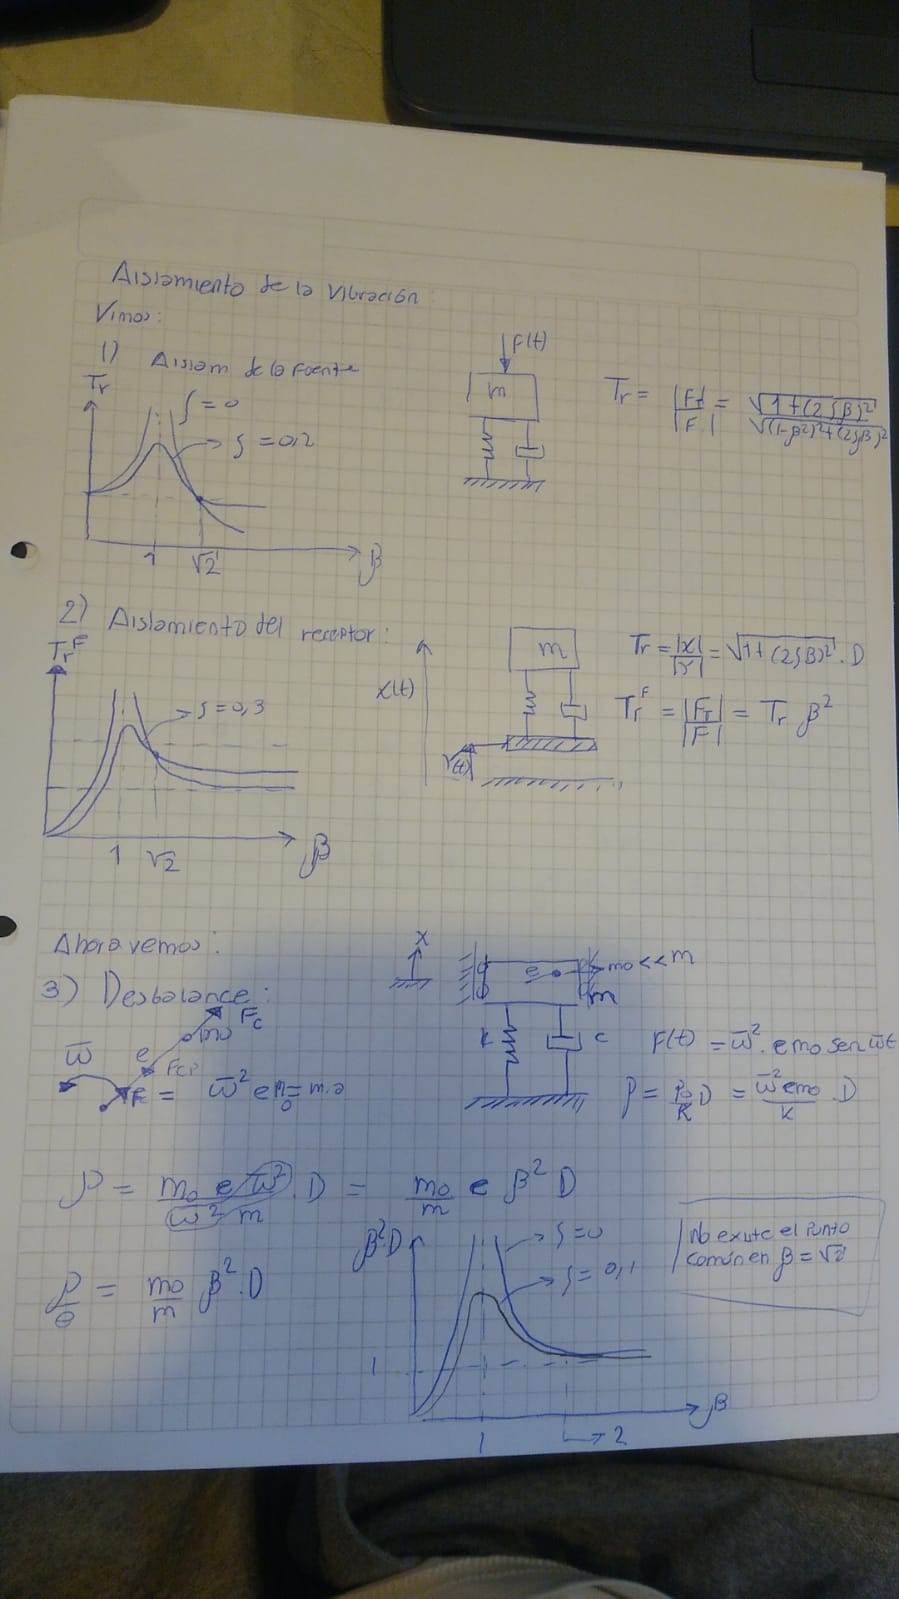 Aislamiento de la vibración
Vimos:
1) Aislam de la fuente
Tr
ζ = 0
ζ = 0,2
1
√2
β
F(t)
m
Tr = |FT|/|F| = √(1+(2ζβ)²)/√((1-β²)²+(2ζβ)²)
2) Aislamiento del receptor:
Tr^F
ζ = 0,3
1
√2
β
x(t)
m
Y(t)
Tr = |X|/|Y| = √(1+(2ζβ)²) . D
Tr^F = |FT|/|F| = Tr β²
Ahora vemos:
3) Desbalance:
ω̄
e
m0
Fc
Fcp
Fc = ω̄² e m0 = m.a
x
e
m0 << m
m
k
c
F(t) = ω̄² . e m0 sen ω̄t
ρ = P0/k D = ω̄² e m0/k . D
ρ = m0 e ω̄²/(ω² m) . D = m0/m e β² D
ρ/e = m0/m β² . D
β²D
ζ = 0
ζ = 0,1
1
1
2
β
No existe el punto
común en β = √2